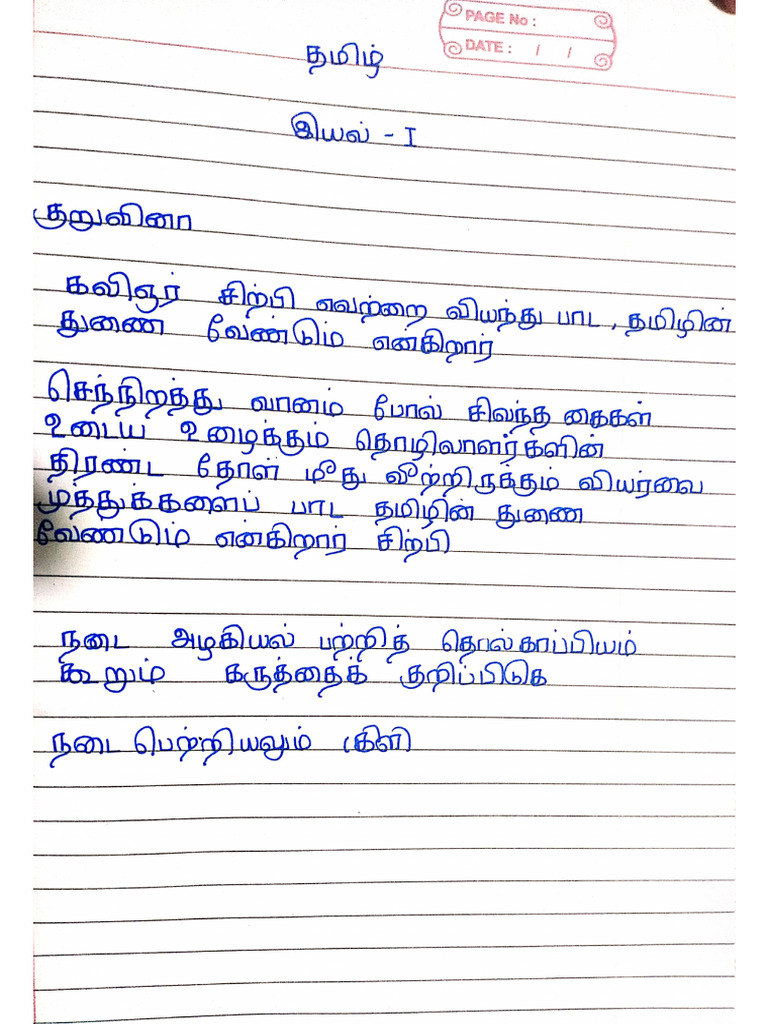 PAGE No :
DATE : / /
தமிழ்
இயல் - I
குறுவினா
கவிஞர் சிற்பி எவற்றை வியந்து பாட, தமிழின்
துணை வேண்டும் என்கிறார்
செந்நிறத்து வானம் போல் சிவந்த கைகள்
உடைய உழைக்கும் தொழிலாளர்களின்
திரண்ட தோள் மீது வீற்றிருக்கும் வியர்வை
முத்துக்களைப் பாட தமிழின் துணை
வேண்டும் என்கிறார் சிற்பி
நடை அழகியல் பற்றித் தொல்காப்பியம்
கூறும் கருத்தைக் குறிப்பிடுக
நடை பெற்றியலும் (கிளி)